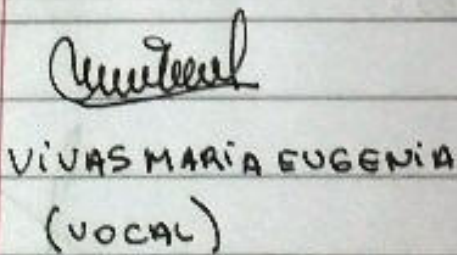 VIVAS MARÍA EUGENIA
(VOCAL)